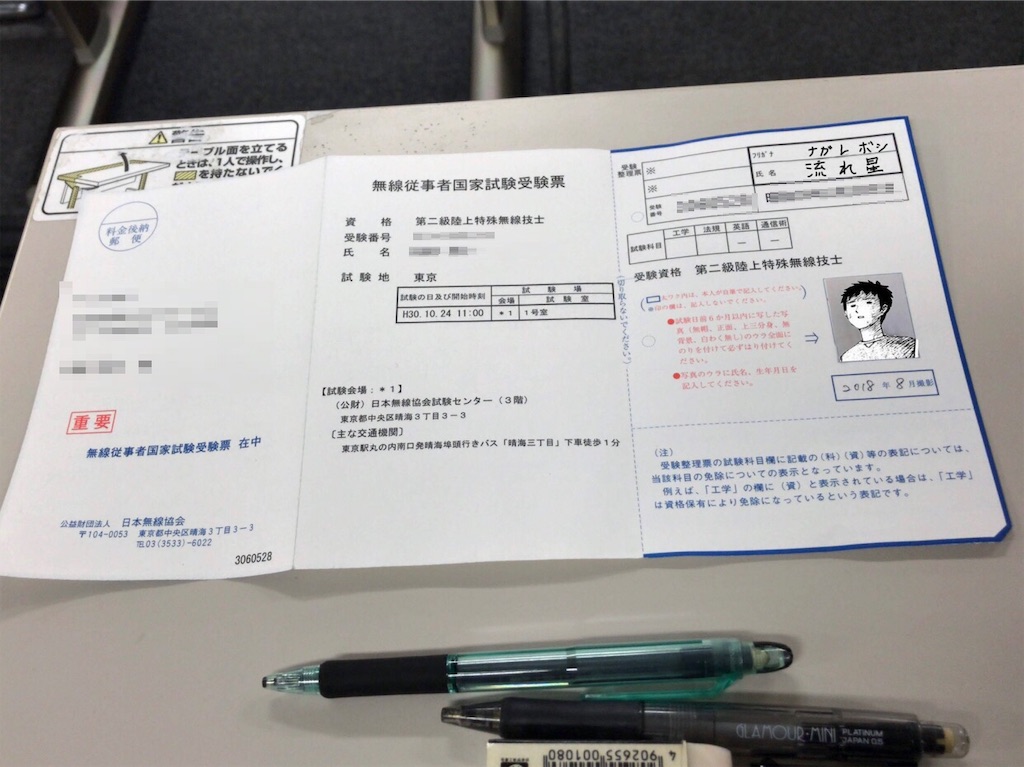 ーブル面を立てる
ときは、1人で操作し、
を持たないで
料金後納
郵便
重要
無線従事者国家試験受験票 在中
公益財団法人 日本無線協会
〒104-0053 東京都中央区晴海3丁目3-3
℡03(3533)-6022
3060528
無線従事者国家試験受験票
資格 第二級陸上特殊無線技士
受験番号
氏名
試験地 東京
試験の日及び開始時刻 試験場
会場 試験室
H30.10.24 11:00 *1 1号室
【試験会場:*1】
(公財)日本無線協会試験センター(3階)
東京都中央区晴海3丁目3-3
〔主な交通機関〕
東京駅丸の内南口発晴海埠頭行きバス「晴海三丁目」下車徒歩1分
(切り取らないでください)
受験整理票
※
※
受験番号
フリガナ ナガレボシ
氏名 流れ星
試験科目 工学 法規 英語 通信術
- -
受験資格 第二級陸上特殊無線技士
太ワク内は、本人が自筆で記入してください。
※印の欄は、記入しないでください。
●試験日前6か月以内に写した写
真(無帽、正面、上三分身、無
背景、白わく無し)のウラ全面に
のりを付けて必ずはり付けてく
ださい。
⇒
●写真のウラに氏名、生年月日を
記入してください。
2018年8月撮影
(注)
受験整理票の試験科目欄に記載の(科)(資)等の表記については、
当該科目の免除についての表示となっています。
例えば、「工学」の欄に(資)と表示されている場合は、「工学」
は資格保有により免除になっているという表記です。
GLAMOUR-MINI PLATINUM
JAPAN 0.5
4 902655 001080